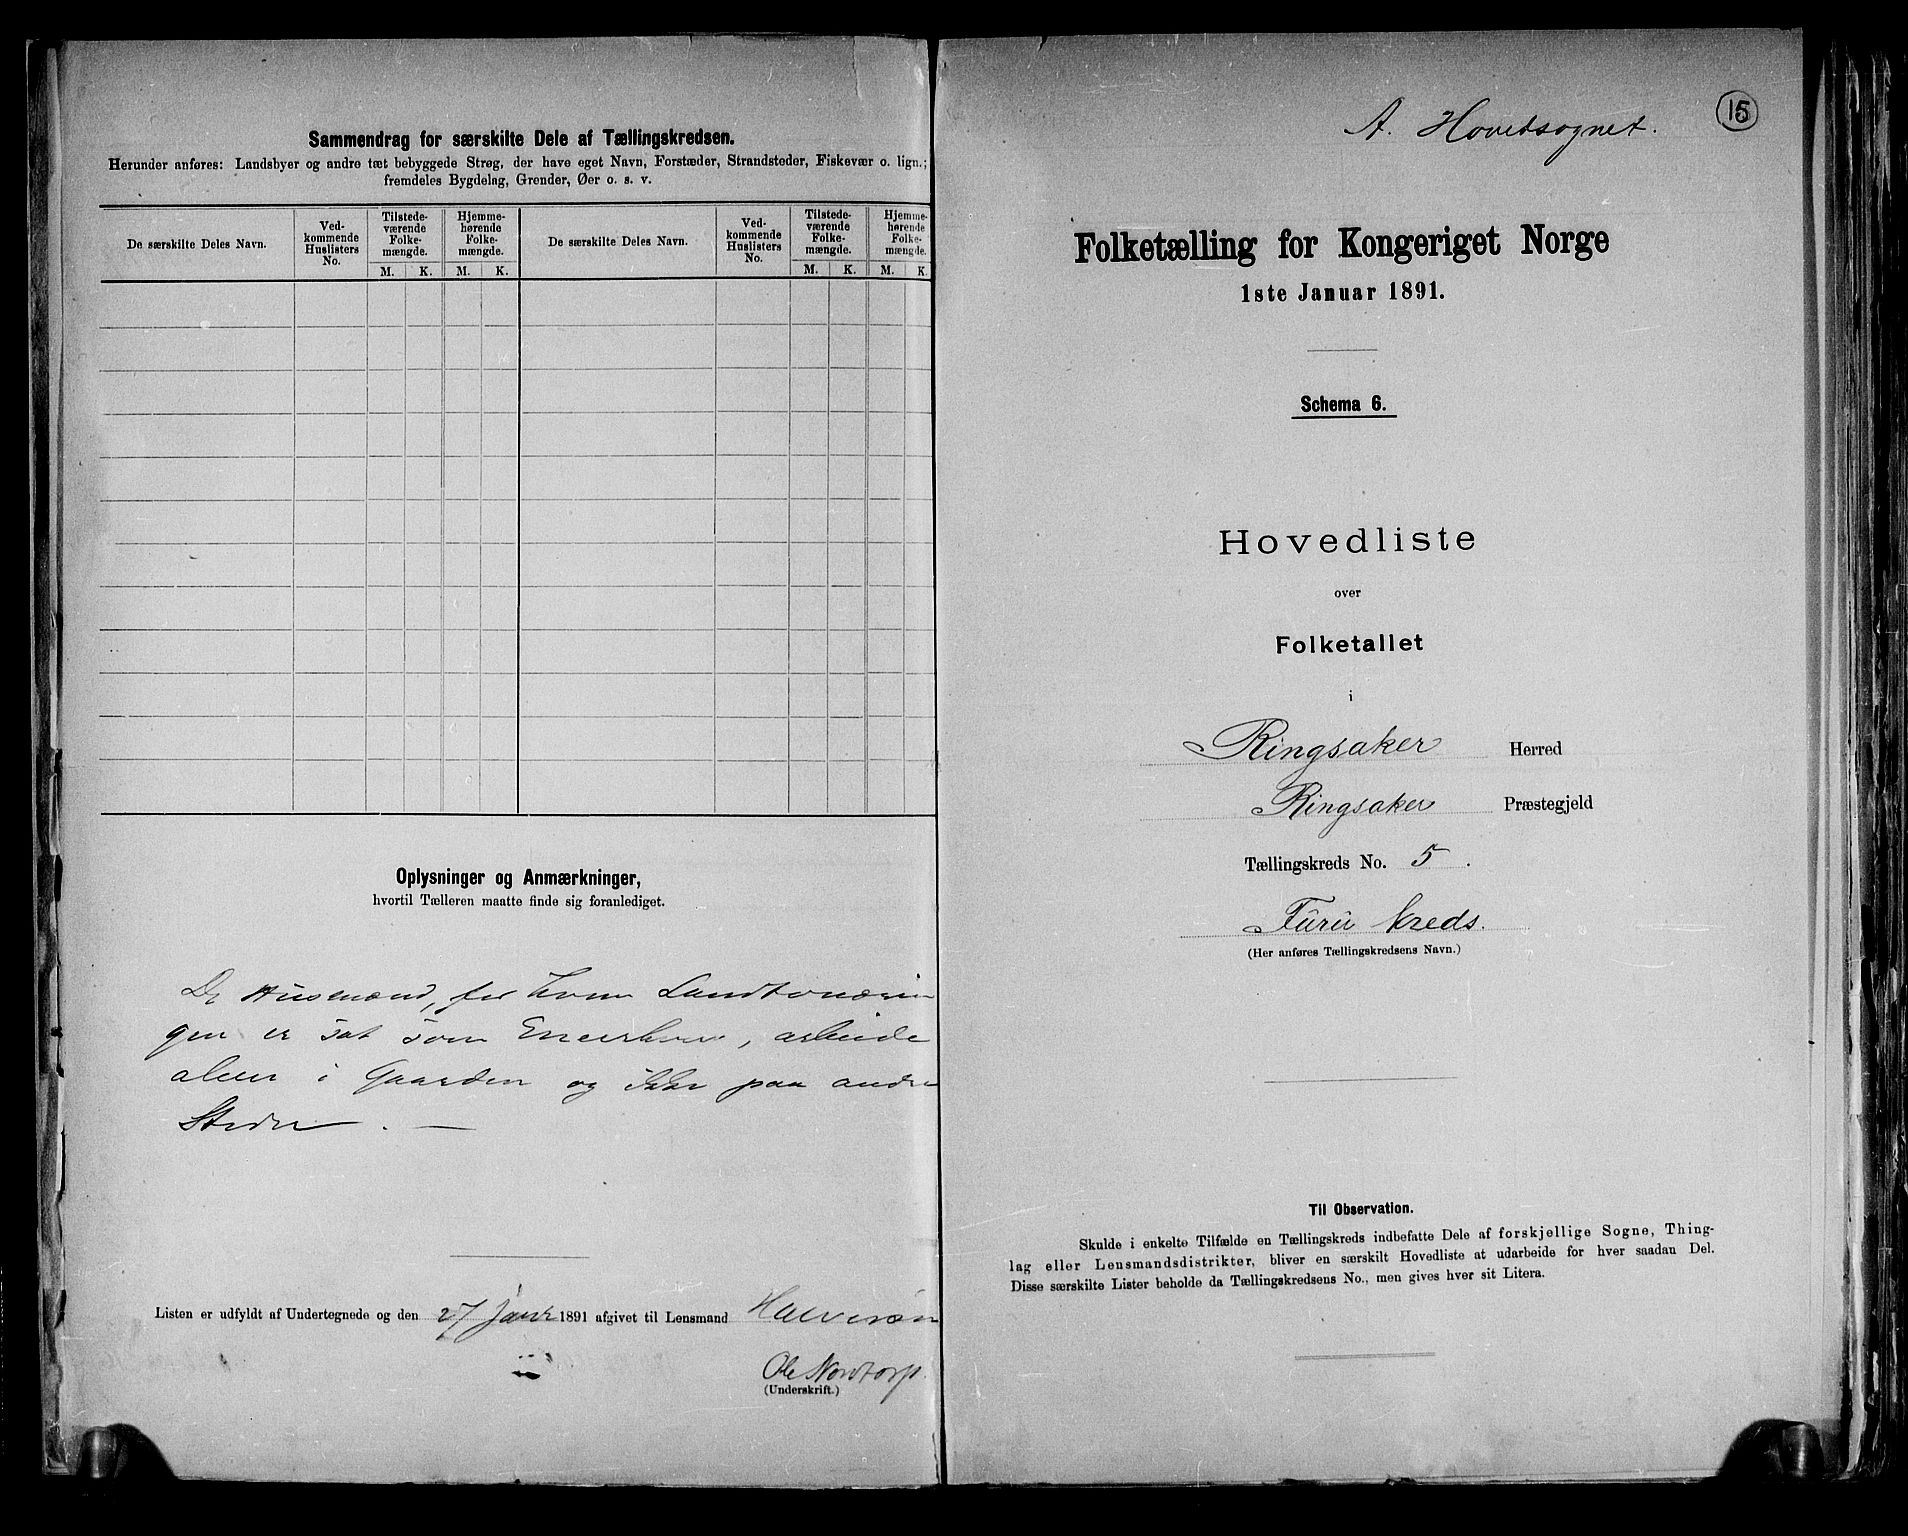 Sammendrag for særskilte Dele af Tællingskredsen.
Herunder anføres: Landsbyer og andre tæt bebyggede Strøg, der have eget Navn, Forstæder, Strandsteder, Fiskevær o. lign.;
fremdeles Bygdelag, Grender, Øer o. s. v.
De særskilte Deles Navn.
Ved-
kommende
Huslisters
No.
Tilstede-
værende
Folke-
mængde.
Hjemme-
hørende
Folke-
mængde.
M. K. M. K.
De særskilte Deles Navn.
Ved-
kommende
Huslisters
No.
Tilstede-
værende
Folke-
mængde.
Hjemme-
hørende
Folke-
mængde.
M. K. M. K.
Oplysninger og Anmærkninger,
hvortil Tælleren maatte finde sig foranlediget.
De Husmænd, for hvem
gen er sat som, arbeide
alene i Gaarden og ikke paa andre
Steder. —
Listen er udfyldt af Undertegnede og den 27 Janr 1891 afgivet til Lensmand
Ole Nordtorp.
(Underskrift.)
15
A. Hovedsognet.
Folketælling for Kongeriget Norge
1ste Januar 1891.
Schema 6.
Hovedliste
over
Folketallet
i
Ringsaker Herred
Ringsaker Præstegjeld
Tællingskreds No. 5.
Furu kreds.
(Her anføres Tællingskredsens Navn.)
Til Observation.
Skulde i enkelte Tilfælde en Tællingskreds indbefatte Dele af forskjellige Sogne, Thing-
lag eller Lensmandsdistrikter, bliver en særskilt Hovedliste at udarbeide for hver saadan Del.
Disse særskilte Lister beholde da Tællingskredsens No., men gives hver sit Litera.